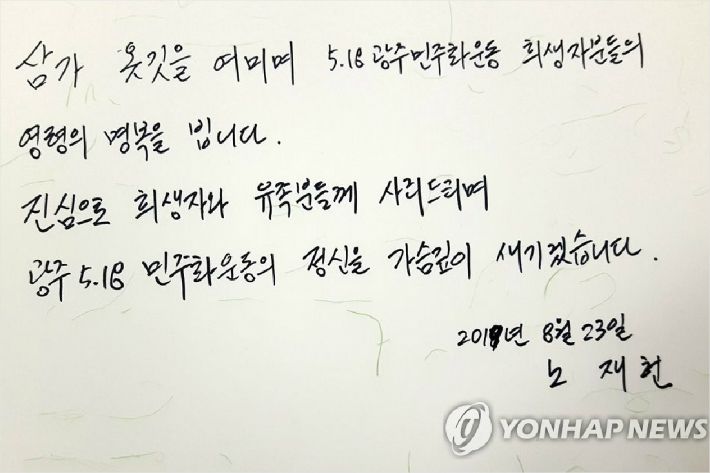 삼가 옷깃을 여미며 5.18 광주 민주화운동 희생자분들의
영령의 명복을 빕니다.
진심으로 희생자와 유족분들께 사죄드리며
광주 5.18 민주화운동의 정신을 가슴깊이 새기겠습니다.
2019년 8월 23일
노 재헌
YONHAP NEWS